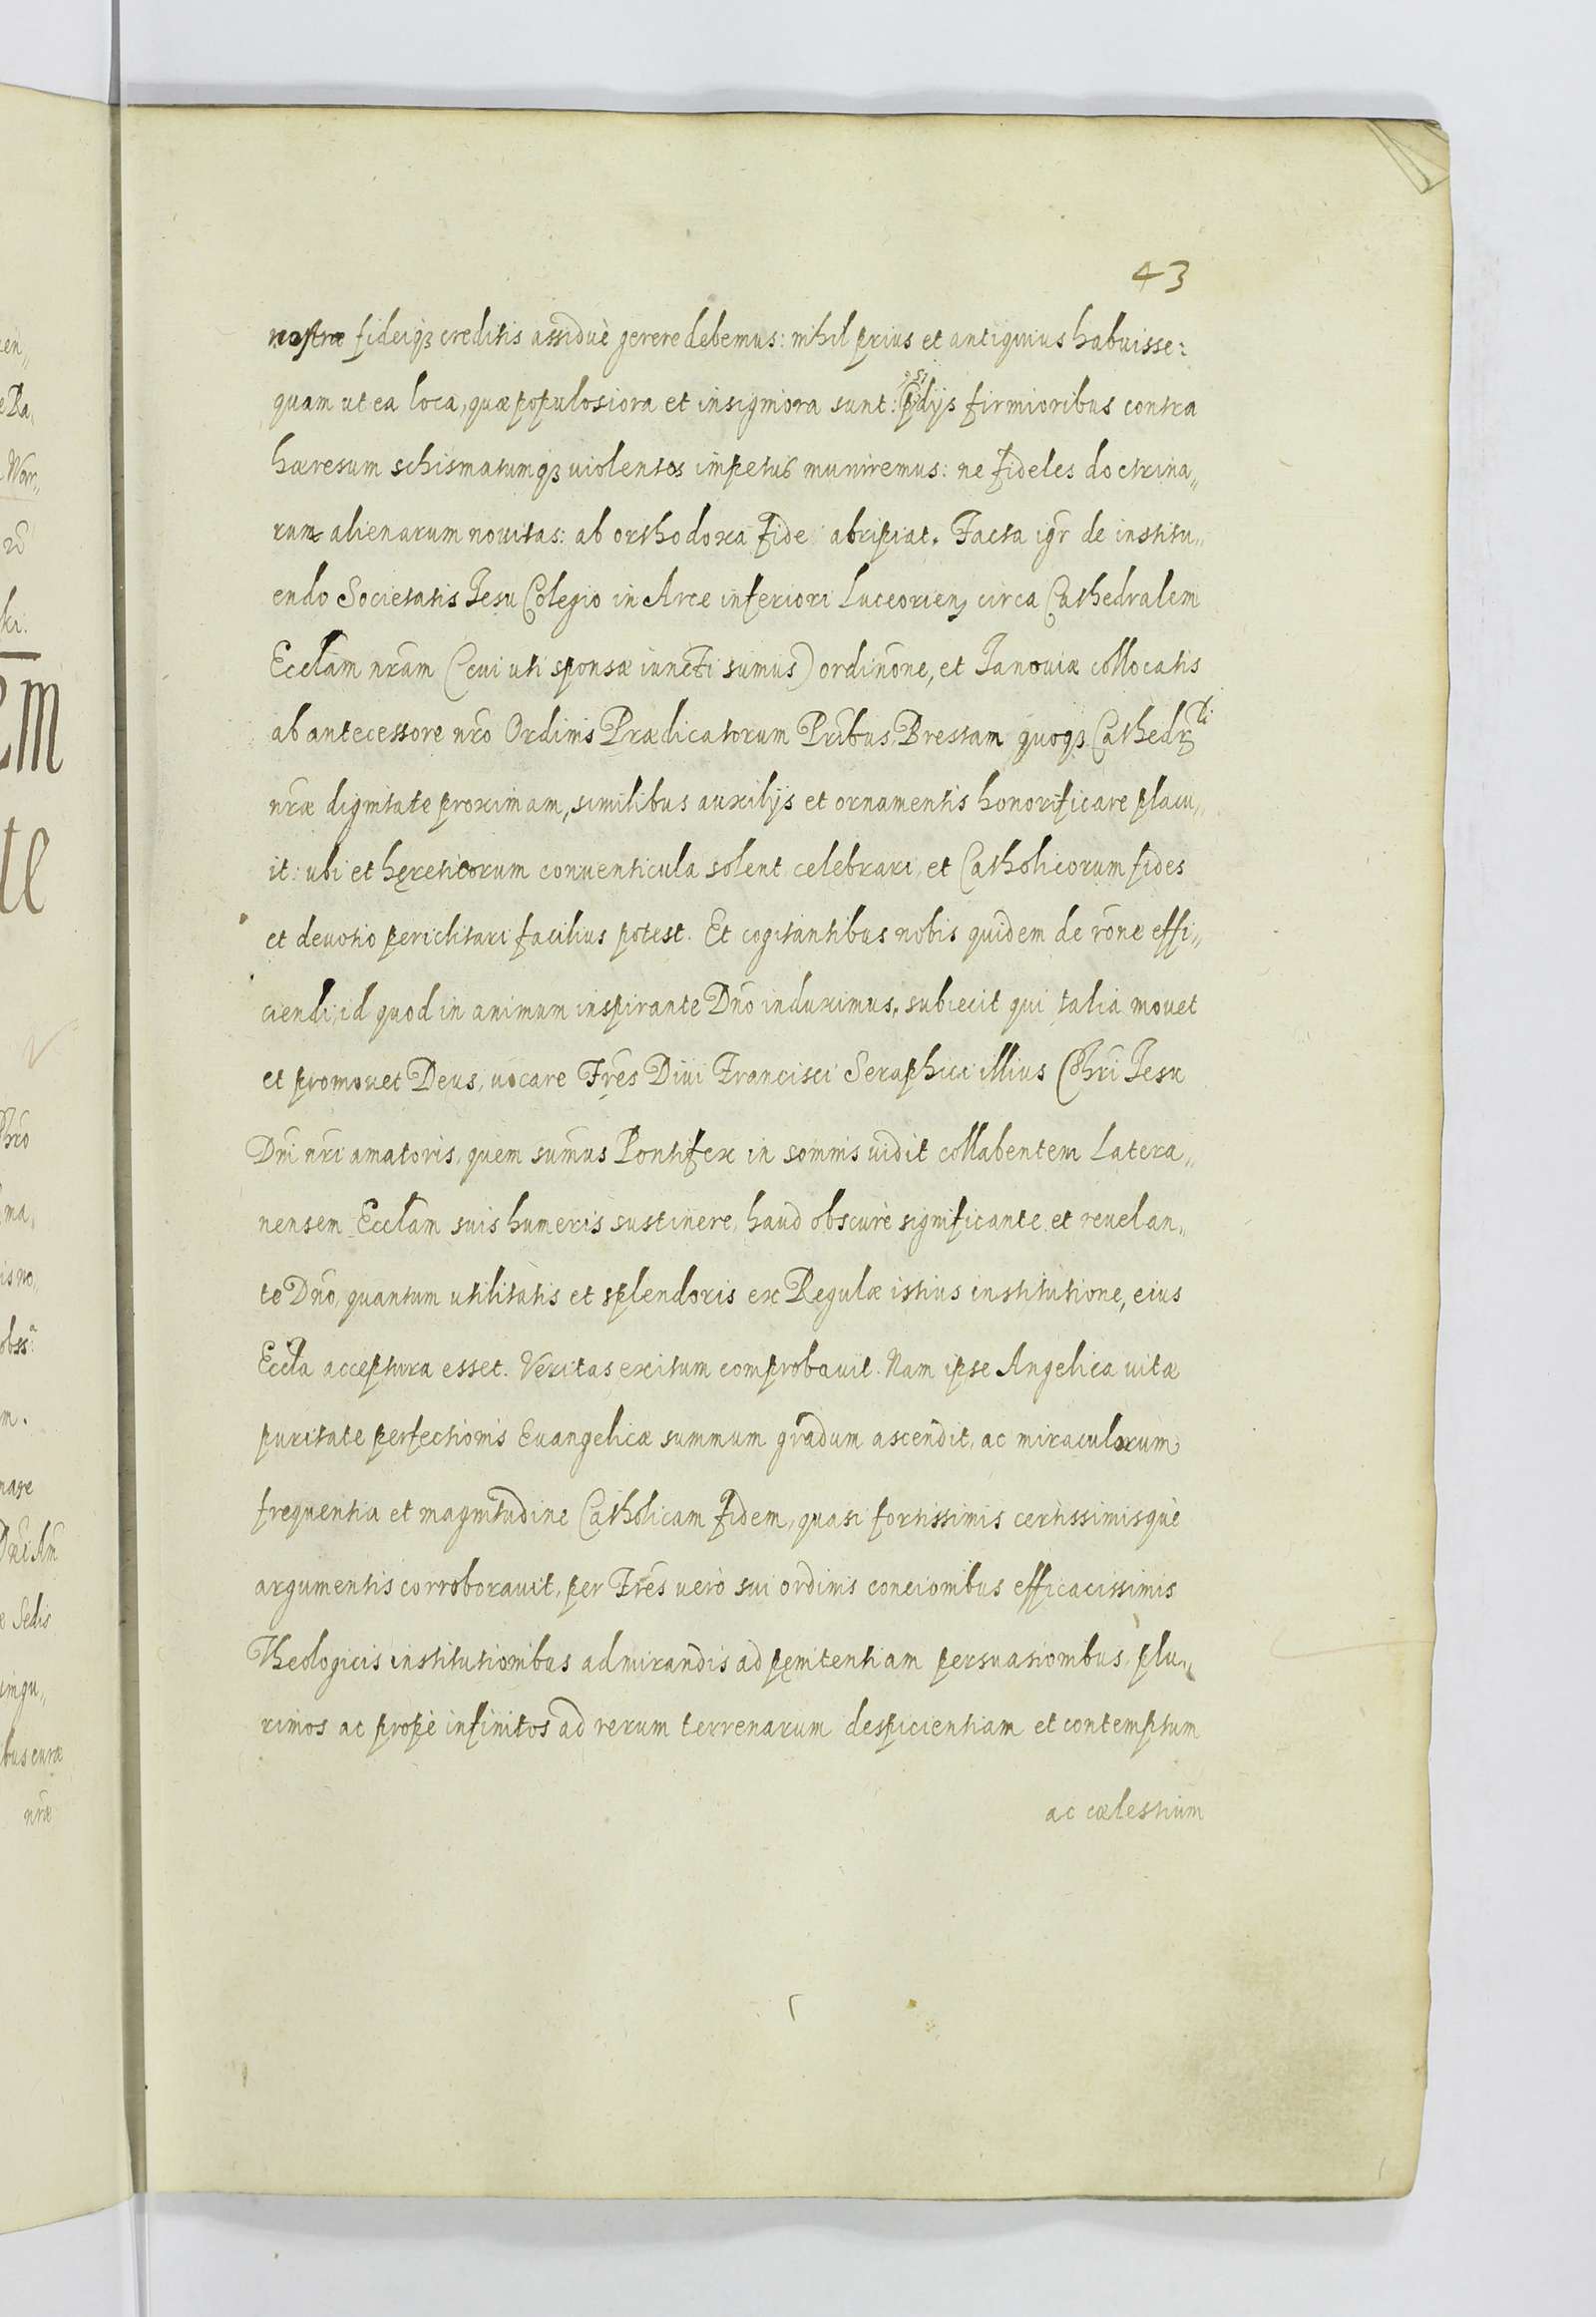 43
nostræ fideiq3 creditis assiduè gerere debemus: nihil prius et antiquius habuisse:
quam ut ea loca, quæ populosiora et insigniora sunt: pr̃sidijs firmioribus contra
hæresum schismatumq3 violentos impetus muniremus: ne fideles doctrina„
rum alienarum nouitas: ab orthodoxa fide abripiat. Facta igr̃ de institu„
endo Societatis Jesu Colegio in Arce inferiori Luceorien, circa Cathedralem
Ecclãm nrãm (cui uti sponsæ iuncti sumus) ordinõne, et Janouiæ collocatis
ab antecessore nrõ Ordinis Prædicatorum Prĩbus, Brestam quoq3 Cathedrli
nrãe dignitate proximam, similibus auxilijs et ornamentis honorificare placu„
it: ubi et hęreticorum conuenticula solent celebrari, et Catholicorum fides
et deuotio periclitari facilius potest. Et cogitantibus nobis quidem de rõne effi„
ciendi, id quod in animum inspirante Dnõ induximus, subiecit qui talia mouet
et promouet Deus, uocare Frẽs Diui Francisci Seraphici illius Chrĩ Jesu
Dnĩ nrĩ amatoris, quem sum̃us Pontifex in somnis uidit collabentem Latera„
nensem Ecclãm suis humeris sustinere, haud obscurè significante et reuelan„
te Dnõ, quantum utilitatis et splendoris ex Regulæ istius institutione, eius
Ecclã acceptura esset. Veritas exitum comprobauit. Nam ipse Angelica uitæ
puritate perfectionis Euangelicæ summum gradum ascendit, ac miraculorum
frequentia et magnitudine Catholicam fidem, quasi fortissimis certissimisquè
argumentis corroborauit, per Frẽs uerò sui ordinis concionibus efficacissimis
Theologicis institutionibus admirandis ad pęnitentiam persuasionibus, plu„
rimos ac propè infinitos ad rerum terrenarum despicientiam et contemptum
ac cælestium